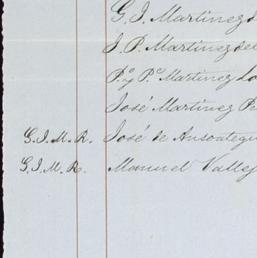 G. J. Martinez d
J. P. Martinez del
P.º y P.º Martinez Lo
José Martinez P
G. J. M. R. José de Ansoategui
G. J. M. R. Manuel Vallej